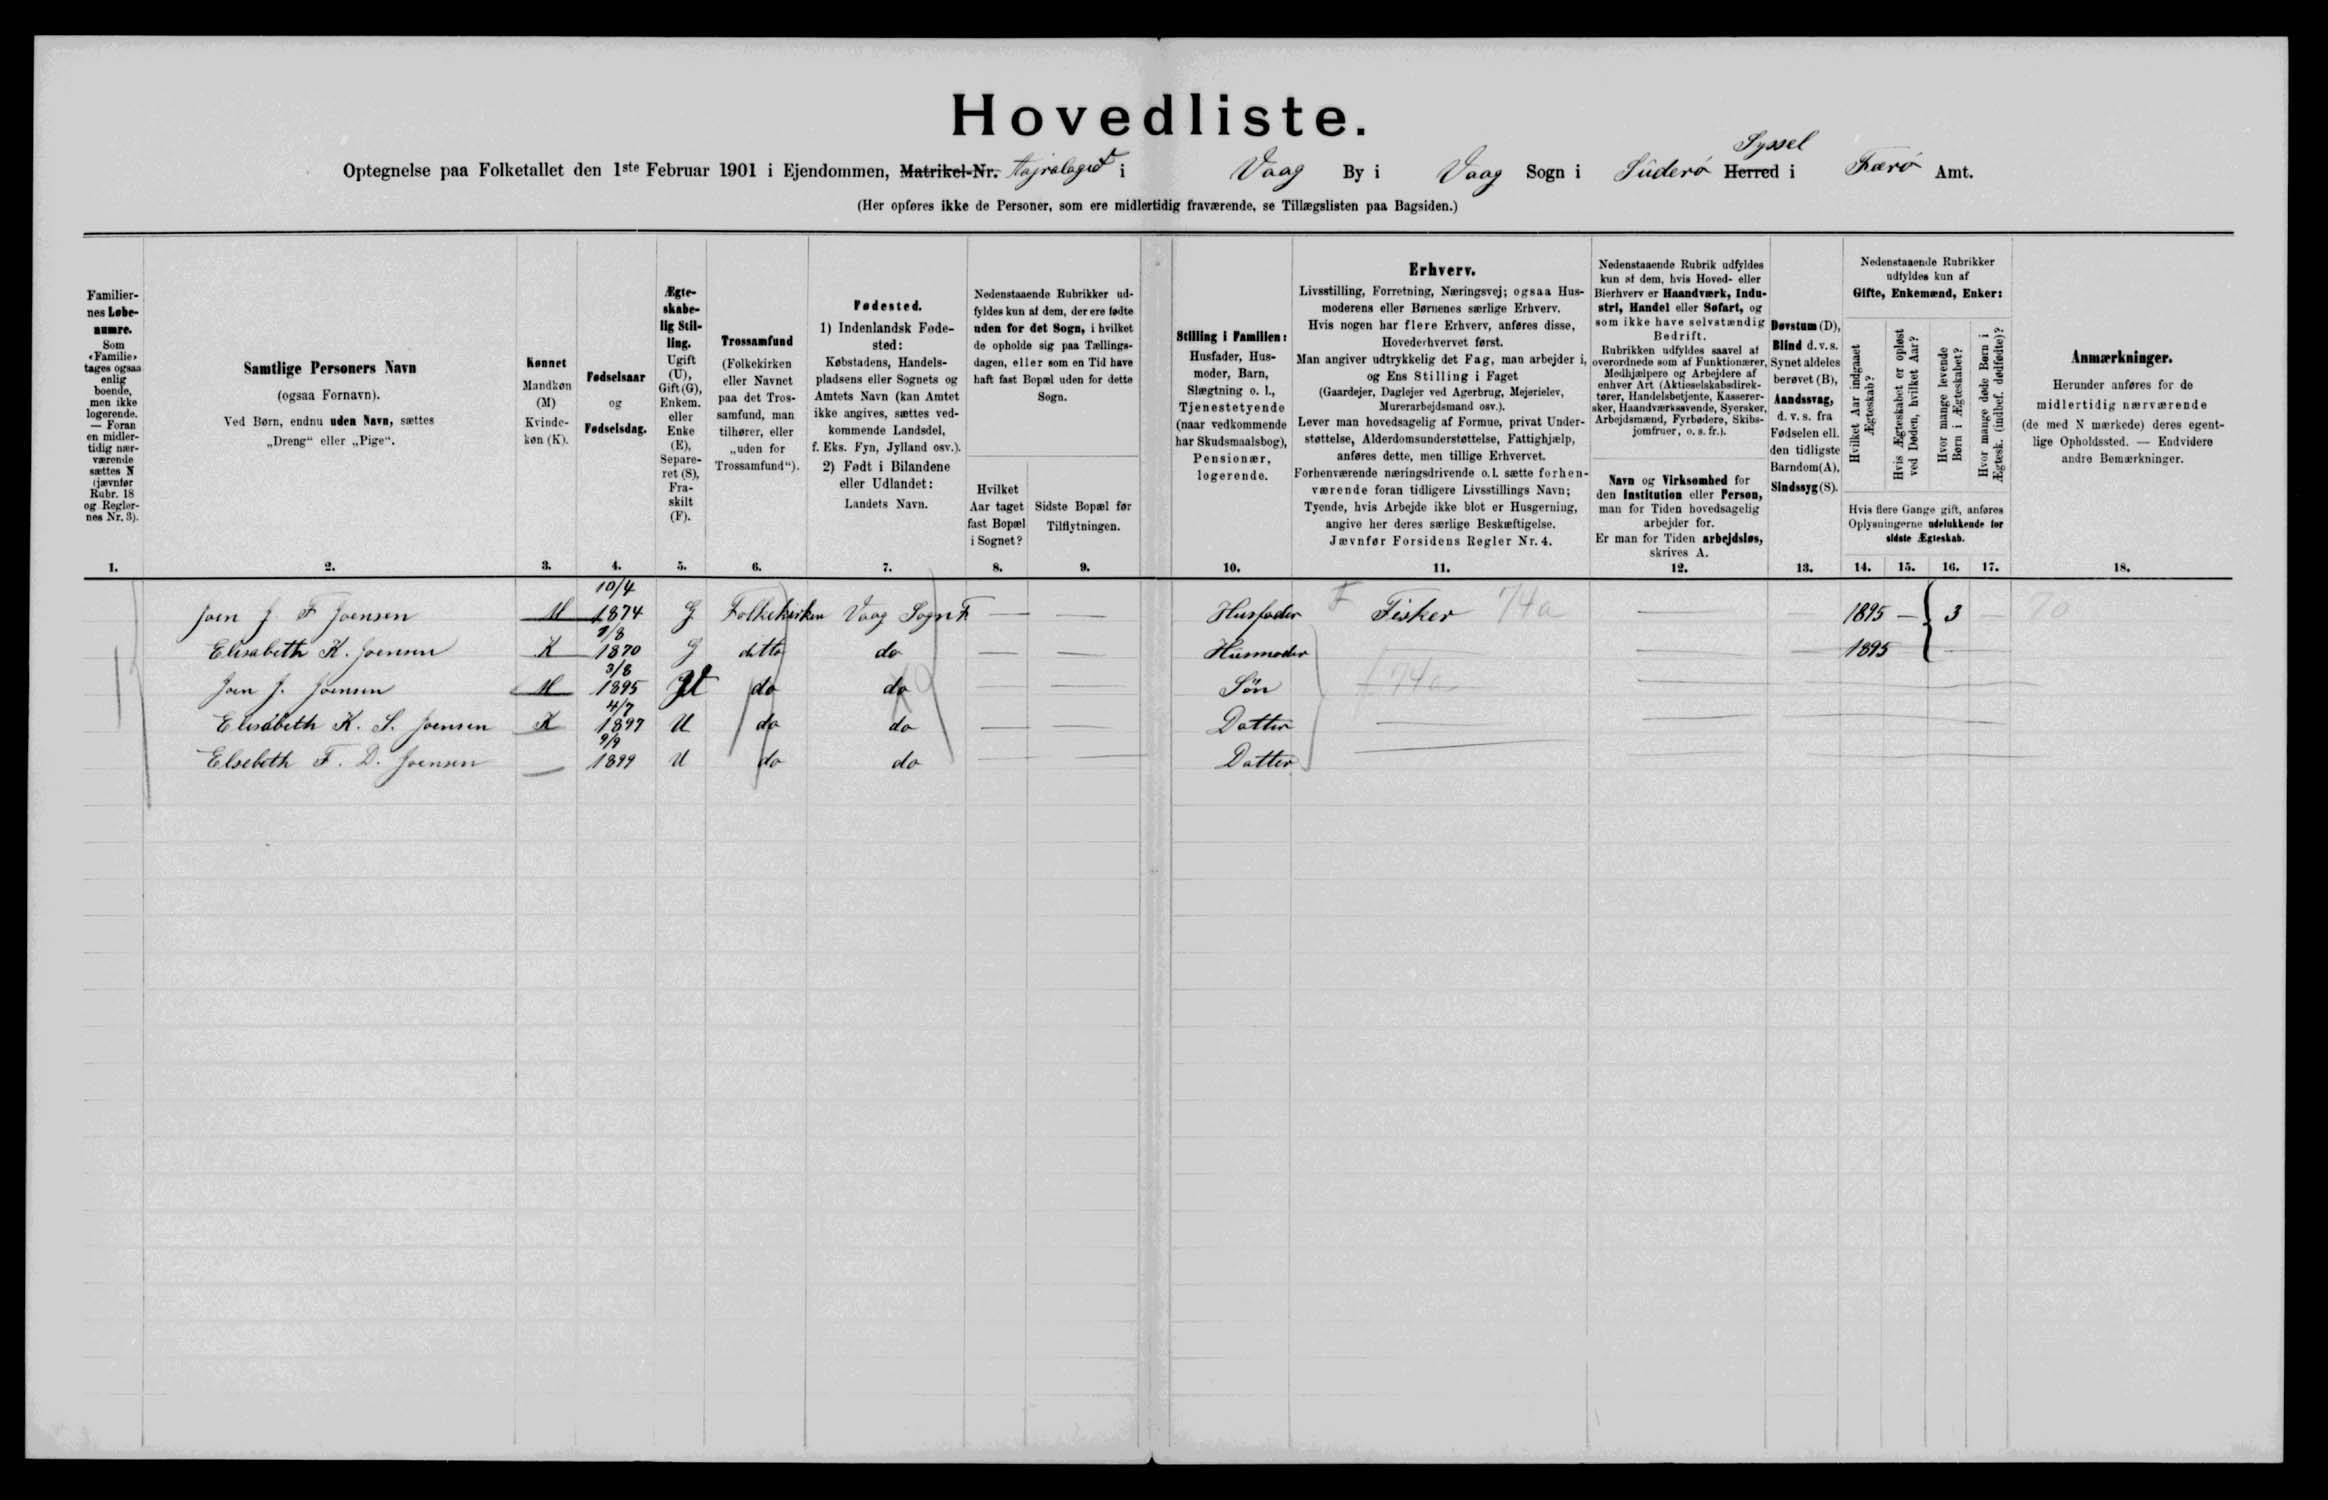 Hovedliste.
Syssel
Optegnelse paa Folketallet den 1ste Februar 1901 i Ejendommen, Matrikel-Nr. i Vaag By i Vaag Sogn i Süderø Herred i Færø Amt.
(Her opføres ikke de Personer, som ere midlertidig fraværende, se Tillægslisten paa Bagsiden.)
Familier-
nes Løbe-
numre.
Som
«Familie»
tages ogsaa
enlig
boende,
men ikke
logerende.
— Foran
en midler-
tidig nær-
værende
sættes N
(jævnfør
Rubr. 18
og Regler-
nes Nr. 3).
Samtlige Personers Navn
(ogsaa Fornavn).
Ved Børn, endnu uden Navn, sættes
„Dreng“ eller „Pige“.
Kønnet
Mandkøn
(M)
Kvinde-
køn (K).
Fødselsaar
og
Fødselsdag.
Ægte-
skabe-
lig Stil-
ling.
Ugift
(U),
Gift (G),
Enkem.
eller
Enke
(E),
Separe-
ret (S),
Fra-
skilt
(F).
Trossamfund
(Folkekirken
eller Navnet
paa det Tros-
samfund, man
tilhører, eller
„uden for
Trossamfund“).
Fødested.
1) Indenlandsk Føde-
sted:
Købstadens, Handels-
pladsens eller Sognets og
Amtets Navn (kan Amtet
ikke angives, sættes ved-
kommende Landsdel,
f. Eks. Fyn, Jylland osv.).
2) Født i Bilandene
eller Udlandet:
Landets Navn.
Nedenstaaende Rubrikker ud-
fyldes kun af dem, der ere fødte
uden for det Sogn, i hvilket
de opholde sig paa Tællings-
dagen, eller som en Tid have
haft fast Bopæl uden for dette
Sogn.
Hvilket
Aar taget
fast Bopæl
i Sognet?
Sidste Bopæl før
Tilflytningen.
Stilling i Familien:
Husfader, Hus-
moder, Barn,
Slægtning o. l.,
Tjenestetyende
(naar vedkommende
har Skudsmaalsbog),
Pensionær,
logerende.
Erhverv.
Livsstilling, Forretning, Næringsvej; ogsaa Hus-
moderens eller Børnenes særlige Erhverv.
Hvis nogen har flere Erhverv, anføres disse,
Hovederhvervet først.
Man angiver udtrykkelig det Fag, man arbejder i,
og Ens Stilling i Faget
(Gaardejer, Daglejer ved Agerbrug, Mejerielev,
Murerarbejdsmand osv.).
Lever man hovedsagelig af Formue, privat Under-
støttelse, Alderdomsunderstøttelse, Fattighjælp,
anføres dette, men tillige Erhvervet.
Forhenværende næringsdrivende o. l. sætte forhen-
værende foran tidligere Livsstillings Navn;
Tyende, hvis Arbejde ikke blot er Husgerning,
angive her deres særlige Beskæftigelse.
Jævnfør Forsidens Regler Nr. 4.
Nedenstaaende Rubrik udfyldes
kun af dem, hvis Hoved- eller
Bierhverv er Haandværk, Indu-
stri, Handel eller Søfart, og
som ikke have selvstændig
Bedrift.
Rubrikken udfyldes saavel af
overordnede som af Funktionærer,
Medhjælpere og Arbejdere af
enhver Art (Aktieselskabsdirek-
tører, Handelsbetjente, Kasserer-
sker, Haandværkssvende, Syersker,
Arbejdsmænd, Fyrbødere, Skibs-
jomfruer, o. s. fr.).
Navn og Virksomhed for
den Institution eller Person,
man for Tiden hovedsagelig
arbejder for.
Er man for Tiden arbejdsløs,
skrives A.
Døvstum (D),
Blind d. v. s.
Synet aldeles
berøvet (B),
Aandssvag,
d. v. s. fra
Fødselen ell.
den tidligste
Barndom (A),
Sindssyg (S).
Nedenstaaende Rubrikker
udfyldes kun af
Gifte, Enkemænd, Enker:
Hvilket Aar indgaaet
Ægteskab?
Hvis Ægteskabet er opløst
ved Døden, hvilket Aar?
Hvor mange levende
Børn i Ægteskabet?
Hvor mange døde Børn i
Ægtesk. (indbef. dødfødte)?
Hvis flere Gange gift, anføres
Oplysningerne udelukkende for
sidste Ægteskab.
Anmærkninger.
Herunder anføres for de
midlertidig nærværende
(de med N mærkede) deres egent-
lige Opholdssted. — Endvidere
andre Bemærkninger.
1. 2. 3. 4. 5. 6. 7. 8. 9. 10. 11. 12. 13. 14. 15. 16. 17. 18.
10/4
Joen J F Joensen M 1874 G Folkekirken Vaag Sogn F. — — Husfader F Fisker 74a — — 1895 — 3 — 70
Elisabeth K. Joensen K 1870 G ditto do — — Husmoder — — 1895
3/8
Joen J. Joensen M 1895 do do — Søn 74a
4/7
Elisabeth K. S. Joensen K 1897 U do do — — Datter
9/9
Elsebeth F. D. Joensen — 1899 U do do — — Datter